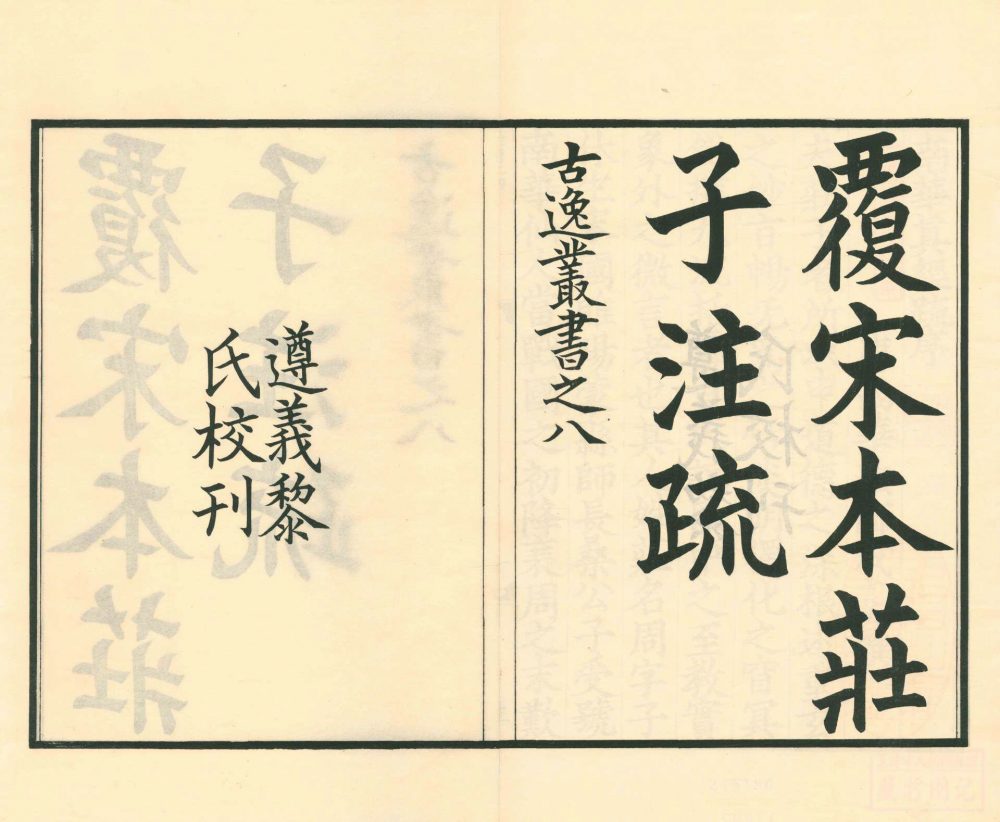 覆宋本莊
子注疏
古逸叢書之八
遵義黎
氏校刊